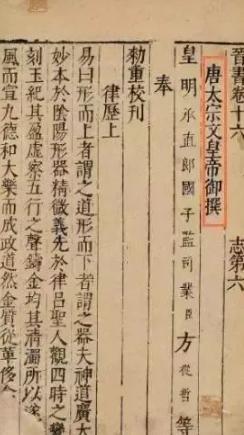 晉書卷十六　志第六
唐太宗文皇帝御撰
皇明承直郎國子監司業臣方從哲等奉
勑重校刋
律歷上
易曰形而上者謂之道形而下者謂之器夫神道廣大
妙本於陰陽形器精微義先於律呂聖人觀四時之變
刻玉紀其盈虛察五行之聲鑄金均其清濁所以遂
風而宣九德和大樂而成政道然金質從革侈弇